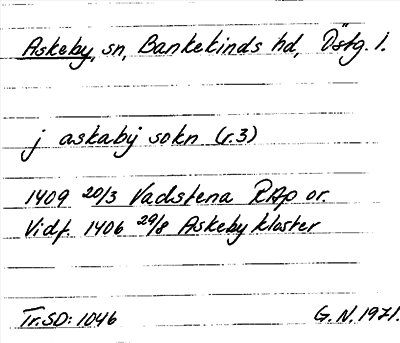 Askeby, sn, Bankekinds hd, Östg. l.
j askabij sokn (r.3)
1409 20/3 Vadstena RAp or.
Vidf. 1406 29/8 Askeby kloster
Tr. SD: 1046
G. N. 1971.